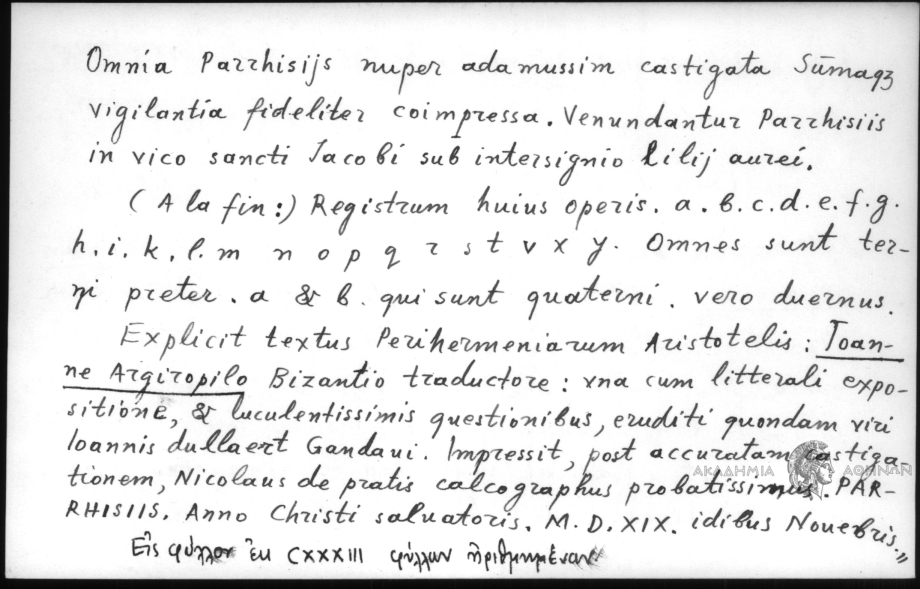 Omnia Parrhisijs nuper adamussim castigata Sūmaqꝫ
vigilantia fideliter coimpressa. Venundantur Parrhisiis
in vico sancti Jacobi sub intersignio Lilij aurei.
( A la fin :) Registrum huius operis. a. b. c. d. e. f. g.
h. i. k. l. m n o p q r s t v x y. Omnes sunt ter-
ni preter. a & b. qui sunt quaterni. vero duernus.
Explicit textus Perihermeniarum Aristotelis : Ioan-
ne Argiropilo Bizantio traductore : vna cum litterali expo-
sitione, & luculentissimis questionibus, eruditi quondam viri
Ioannis dullaert Gandaui. Impressit, post accuratam castiga-
tionem, Nicolaus de pratis calcographus probatissimus. PAR-
RHISIIS. Anno Christi saluatoris. M. D. XIX. idibus Nouebris."
Εἰς φύλλον ἐκ CXXXIII φύλλων ἠριθμημένων
ΑΚΑΔΗΜΙΑ ΑΘΗΝΩΝ